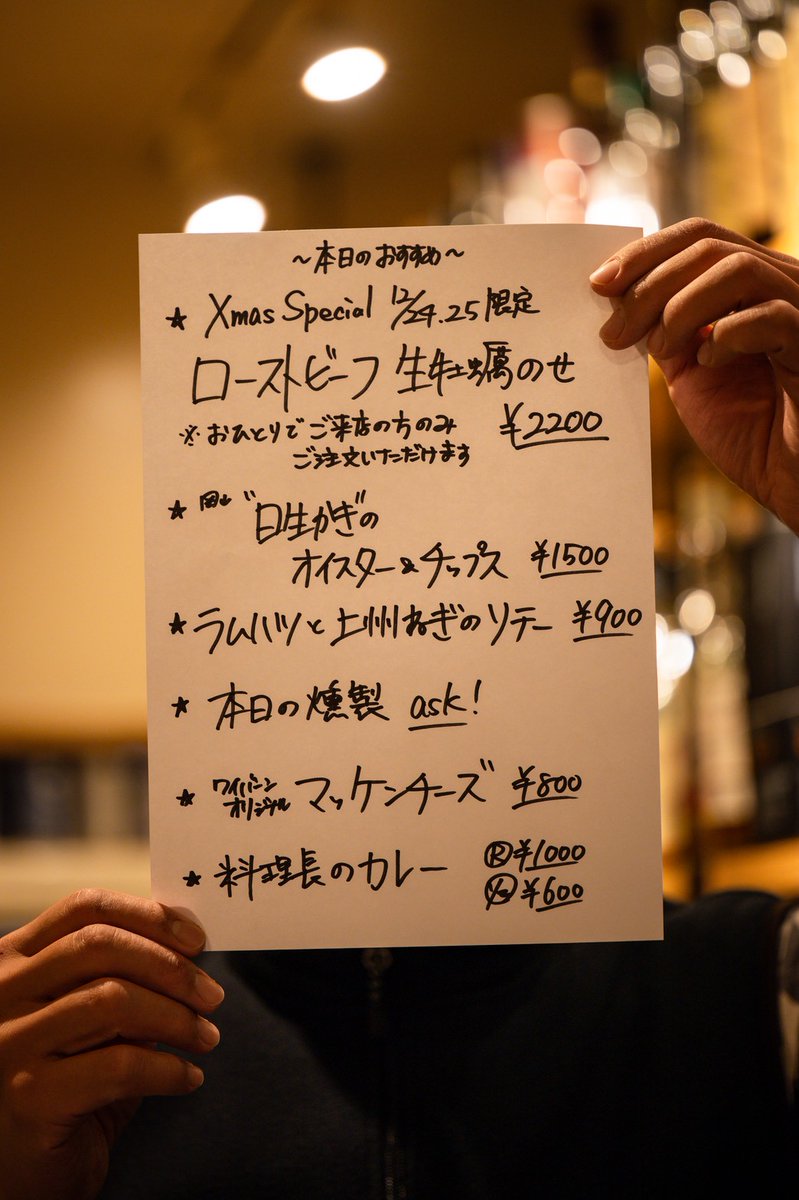 ～本日のおすすめ～
★ Xmas Special 12/24.25限定
ローストビーフ 生牡蠣のせ
※おひとりでご来店の方のみ ¥2200
ご注文いただけます
★ 岡山 "日生かき"の
オイスター&チップス ¥1500
★ ラムハツと上州ねぎのソテー ¥900
★ 本日の燻製 ask!
★ ワイバーンオリジナル マッケンチーズ ¥800
★ 料理長のカレー Ⓡ¥1000
¥600